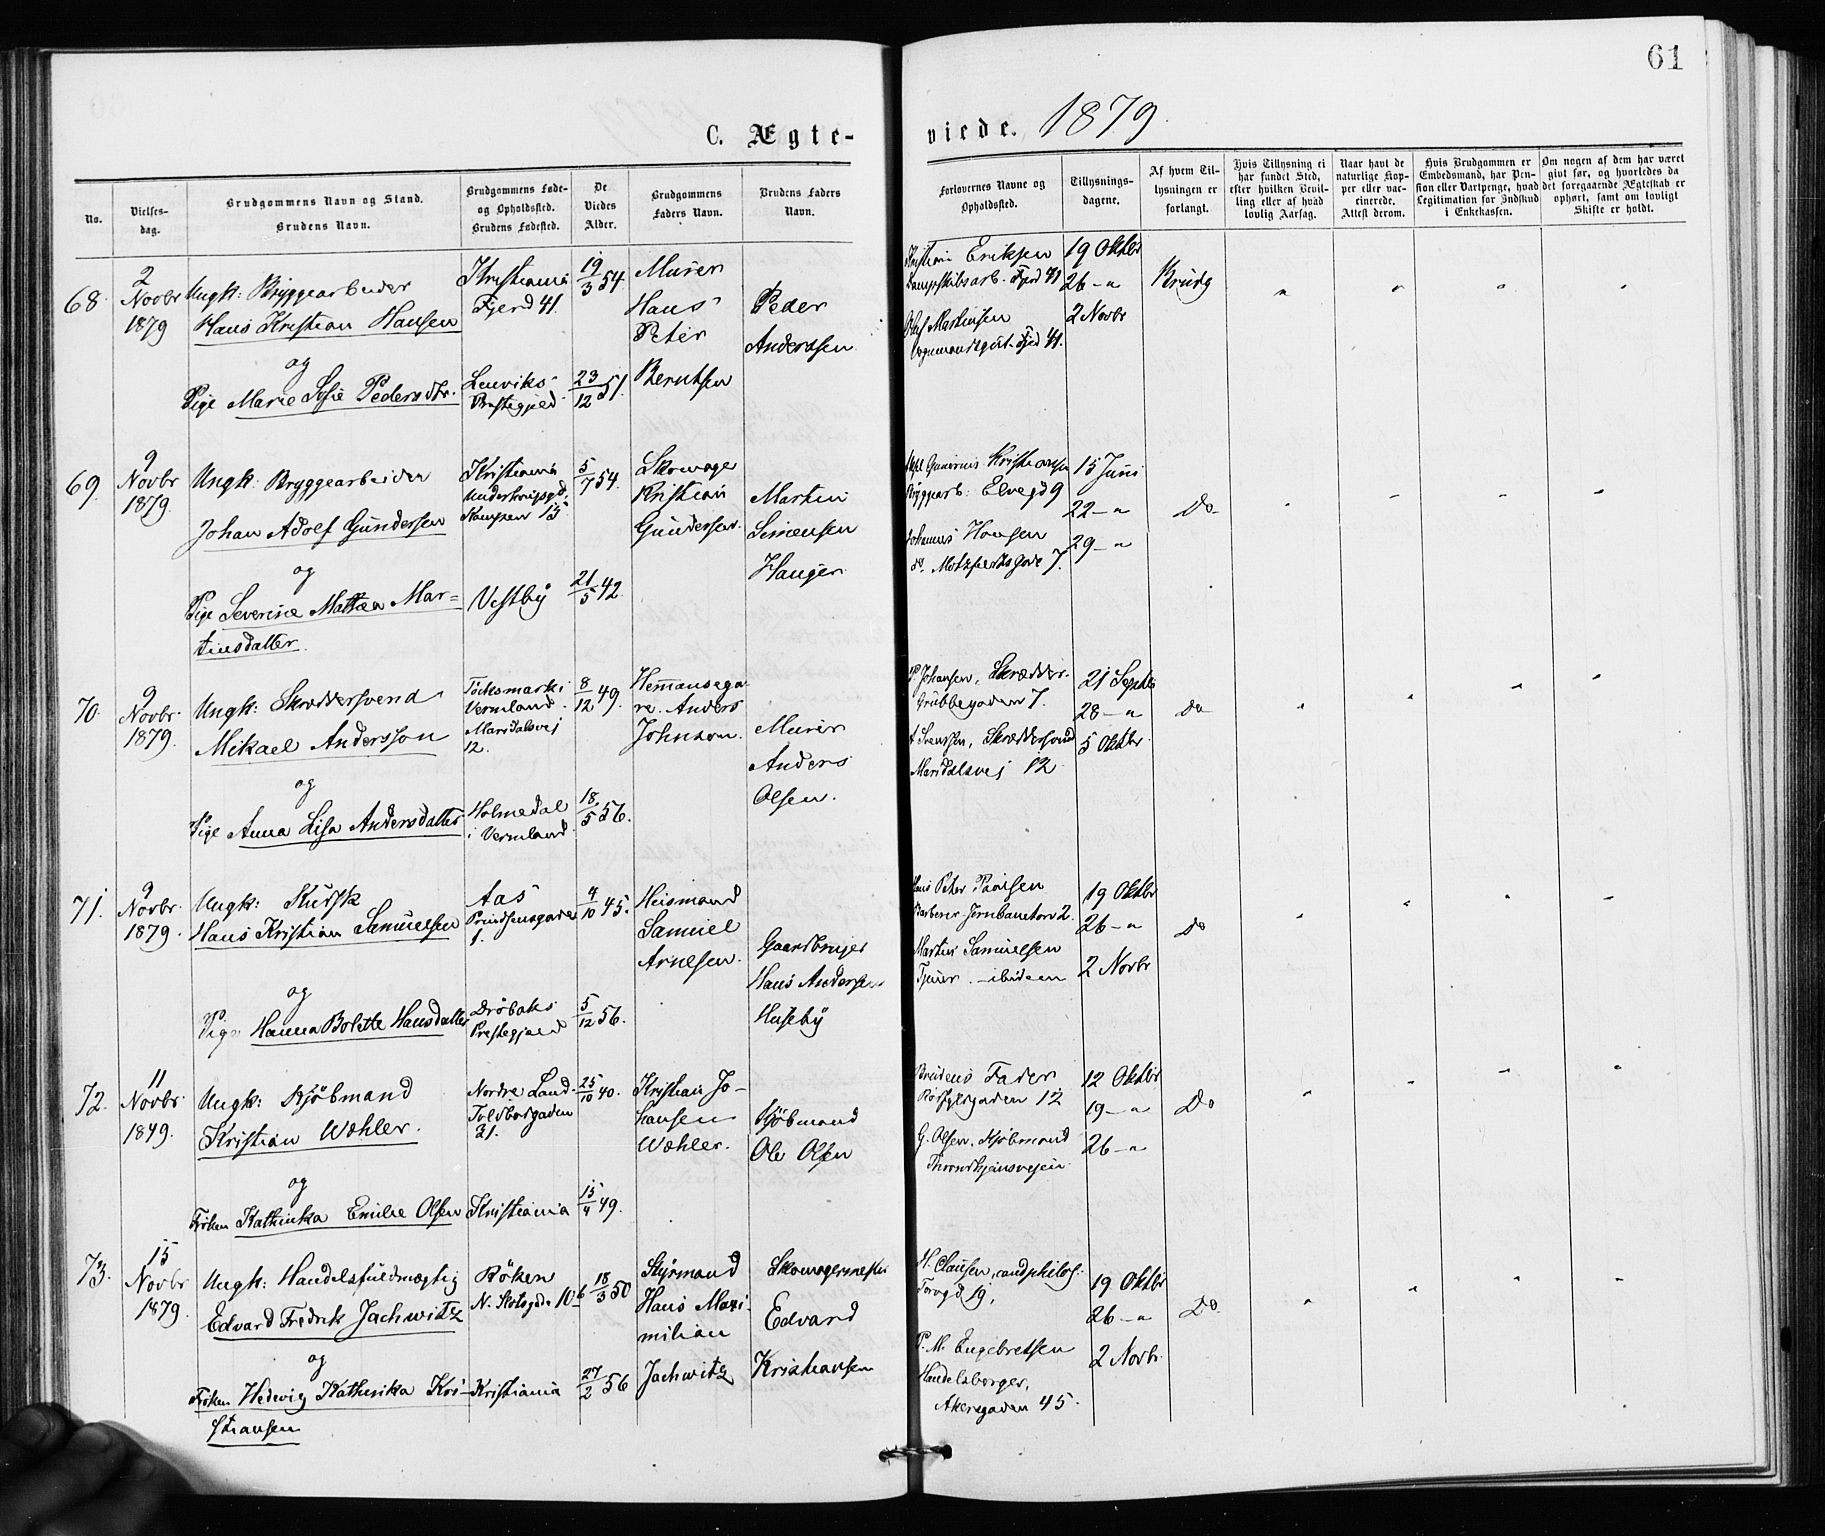 61
C. Ægte-
viede. 1879
No.
Vielses-
dag.
Brudgommens Navn og Stand.
Brudens Navn.
Brudgommens Føde-
og Opholdssted.
Brudens Fødested.
De
Viedes
Alder.
Brudgommens
Faders Navn.
Brudens Faders
Navn.
Forlovernes Navne og
Opholdssted.
Tillysnings-
dagene.
Af hvem Til-
lysningen er
forlangt.
Hvis Tillysning ei
har fundet Sted,
efter hvilken Bevil-
ling eller af hvad
lovlig Aarsag.
Naar havt de
naturlige Kop-
per eller vac-
cinerede.
Attest derom.
Hvis Brudgommen er
Embedsmand, har Pen-
sion eller Vartpenge, hvad
Legitimation for Indskud
i Enkekassen.
Om nogen af dem har været
givt før, og hvorledes da
det foregaaende Ægteskab er
ophørt, samt om lovligt
Skifte er holdt.
68.
2
Novbr
1879
Ungk: Bryggearbeider
Hans Kristian Hansen
og
Pige Marie Sofie Pedersdtr.
Kristiania
Fjerd 41.
Lenviks
Prestegjeld
19/3 54.
23/12 51.
Murer
Hans
Peter
Berntsen
Peder
Anderssen
Kristian Eriksen
Dampskibsarb. Fjerd 41
Oluf Martinsen
Vognmandsgut. Fjed 41.
19 Oktbr
26 - "
2 Novbr
Brudg
69.
9
Novbr
1879.
Ungk: Bryggearbeider
Johan Adolf Gundersen
og
Pige Severine Mathea Mar-
tinsdatter.
Kristiania
Kampen 15
Vestby
5/7 54.
21/5 42.
Skomager
Kristian
Gundersen.
Martin
Simensen
Hauger
Kristiansen
Bryggearb: Elvegd 9
Johannes Hansen
do. Motzfeldtsgade 7.
15 Juni
22 - "
29 - "
Do
70.
9
Novbr.
1879.
Ungk: Skræddersvend
Mikael Andersson
og
Pige Anna Lisa Andersdatter
Töcksmark i
Vermland.
Maridalsvej
12.
Holmedal
i Vermland.
8/12 49.
18/5 56.
Hemansega
re. Anders
Johnson.
Murer
Anders
Olsen.
P Johansen, Skrædder.
Grubbegaden 7.
A Svenssen, Skræddersvend
Maridalsvej 12
21 Septbr
28 - "
5 Oktbr.
Do
71.
9
Novbr.
1879.
Ungk: Kudsk
Hans Kristian Samuelsen
og
Pige Hanna Bolette Hansdatter
Aas
Prindsensgade
1.
Drøbaks
Prestegjeld
4/10 45.
5/12 56.
Heismand
Samuel
Arnesen.
Gaardbruger
Hans Andersen
Huseby
Hans Peter Paulsen
Barberer Jernbanetorv 2.
Martin Samuelsen
Tjener. - ibidem
19 Oktbr
26 - "
2 Novbr
Do
72.
11
Novbr.
1849.
Ungk: Kjøbmand
Kristian Wøhler.
og
Frøken Kathinka Emilie Olsen
Nordre Land.
Toldbodgaden
31.
Kristiania
25/10 40.
15/4 49.
Kristian Jo-
hansen
Wøhler.
Kjøbmand
Ole Olsen
Brudens Fader
12
G. Olsen, Kjøbmand
Throndhjemsvejen
12 Oktbr
19 - "
26 - "
Do
73.
15
Novbr
1879.
Ungk: Handelsfuldmægtig
Edvard Fredrik Jachwitz
og
Frøken Hedevig Kathinka Kri-
stiansen
Röken
N. Slotsgade 10 b
Kristiania
18/3 50
27/2 56
Styrmand
Hans Maxi-
milian
Jachwitz
Skomagermester
Edvard
Kristiansen
H. Clausen, cand philos.
Torvgd 19,
P. M. Engebretsen
Handelsborger,
Akersgaden 45.
19 Oktbr
26 - "
2 Novbr
Do